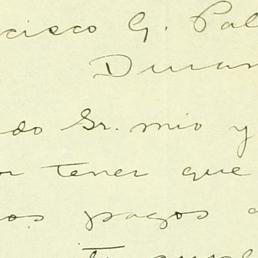 cisco G. Pal
Duran
do Sr. mio y
or tener que
os pagos